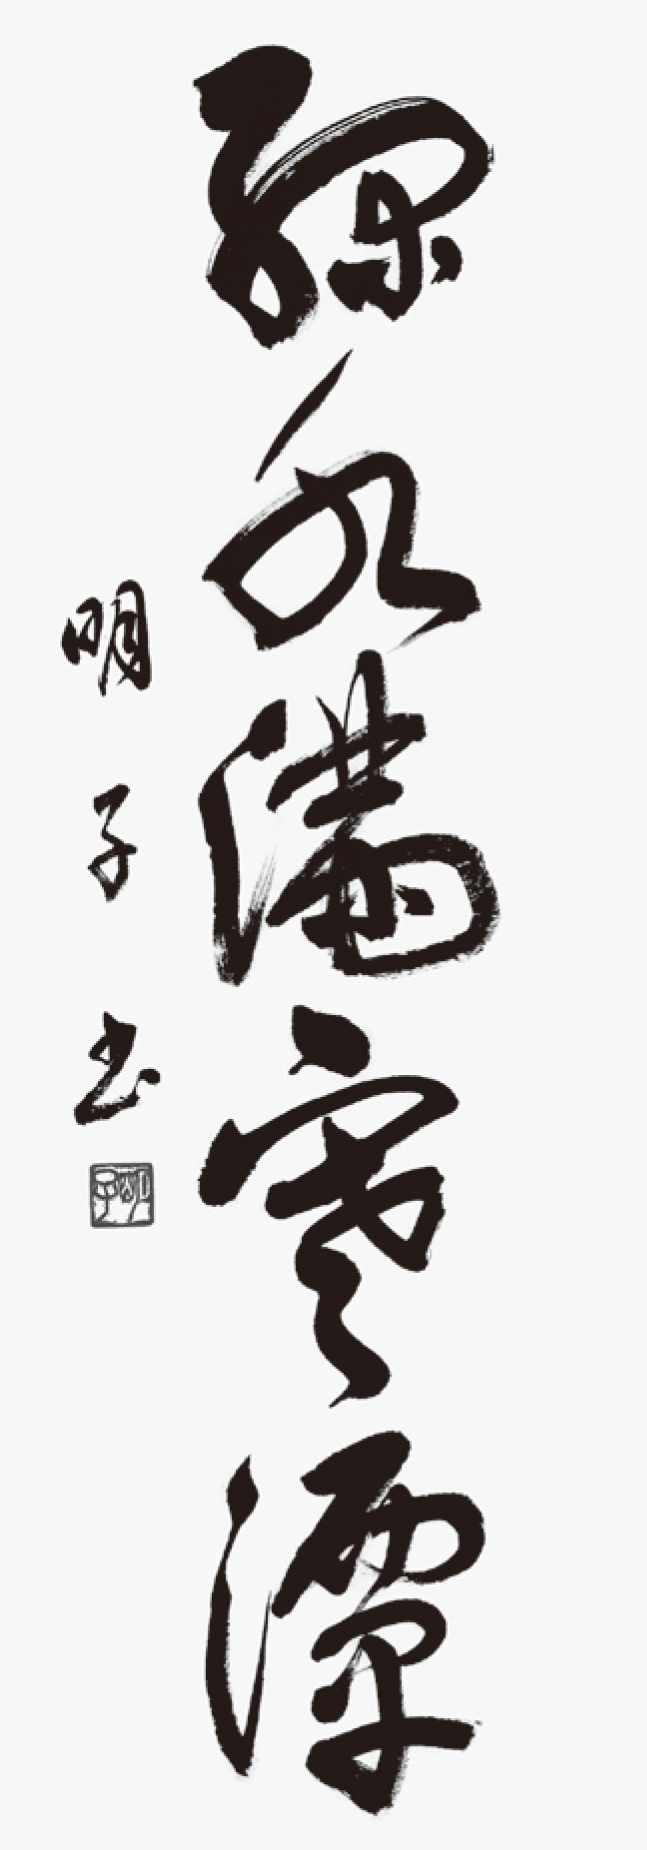 緑水満寒潭
明子書